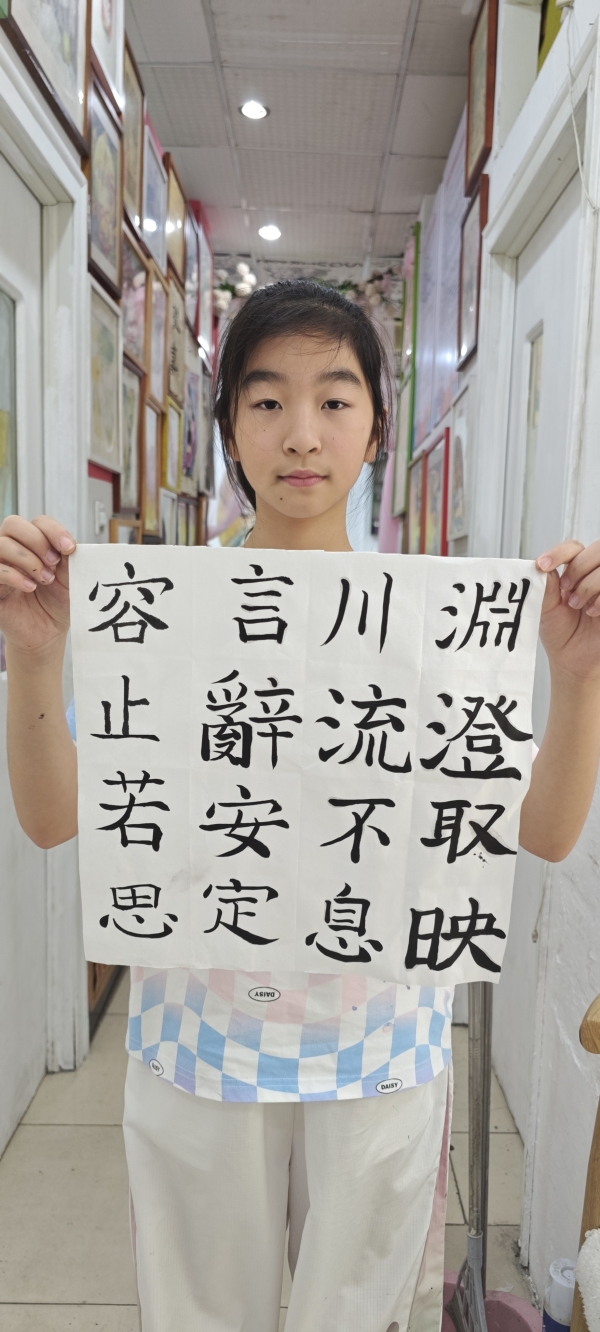 淵澄取映
川流不息
言辭安定
容止若思
DAISY
DAISY